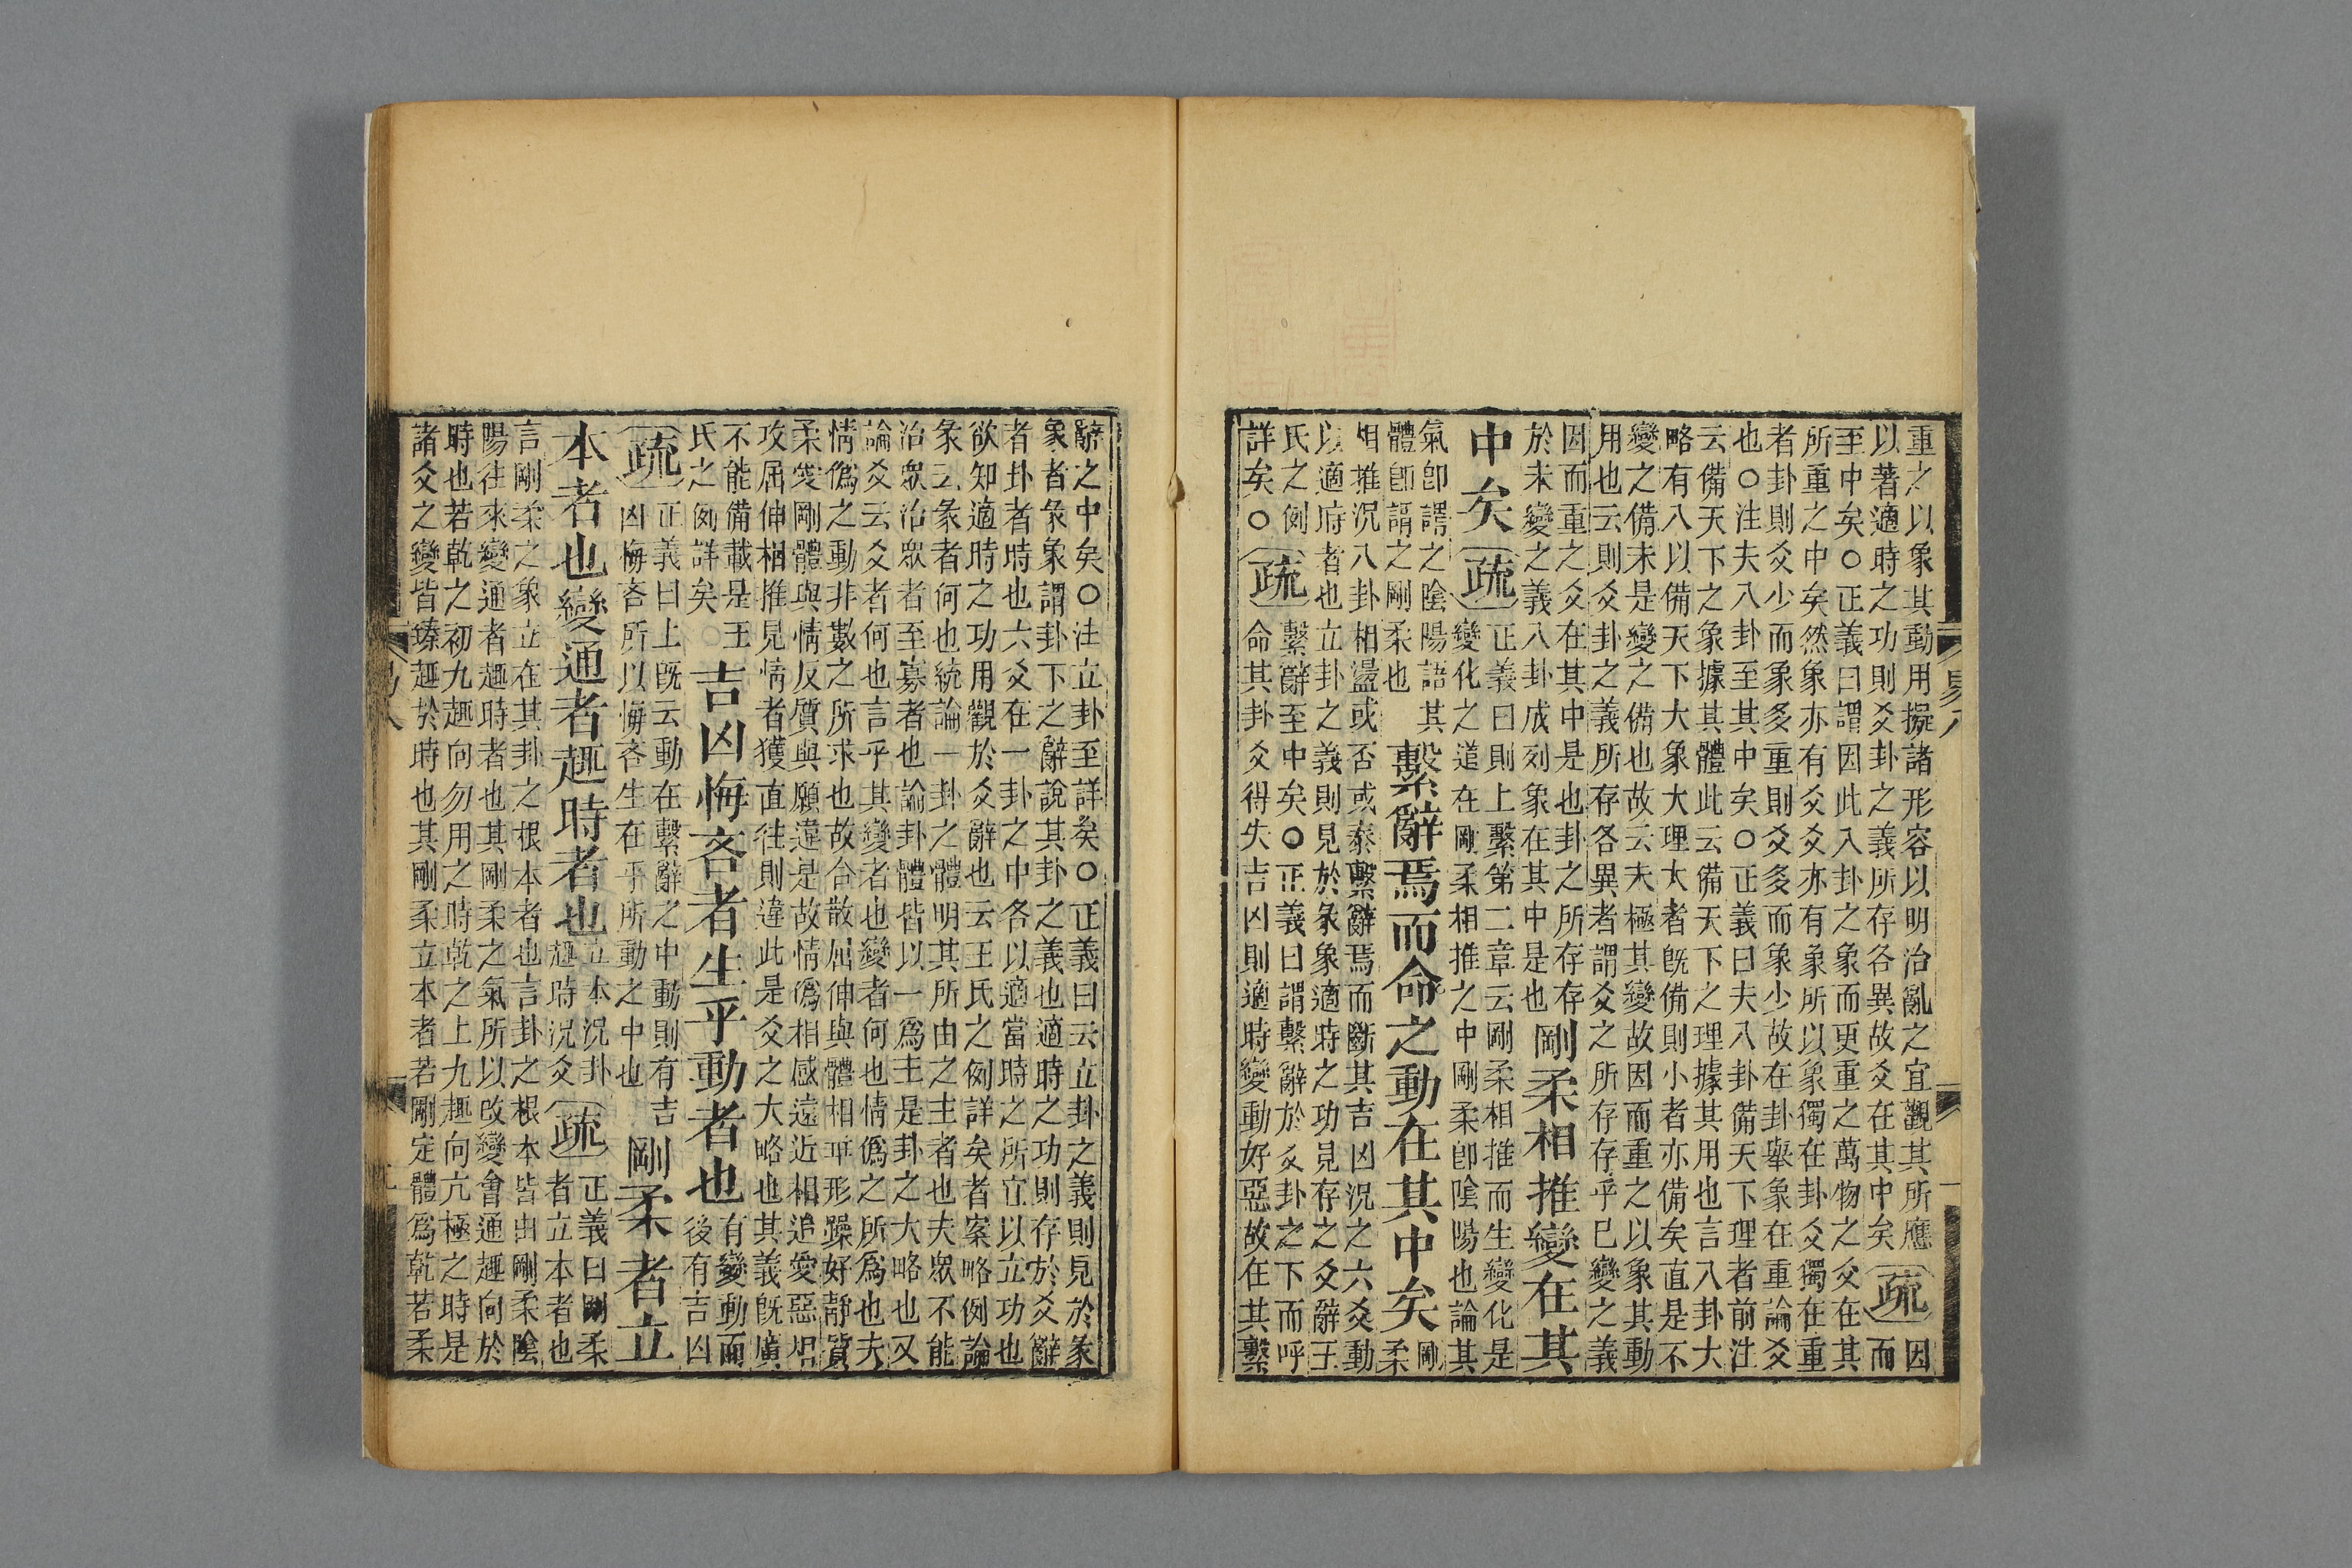 重之以象其動用擬諸形容以明治亂之宜觀其所應
以著適時之功則爻卦之義所存各異故爻在其中矣
疏
因
而
至中矣○正義曰謂因此八卦之象而更重之萬物之爻在其
所重之中矣然象亦有爻爻亦有象所以象獨在卦爻獨在重
者卦則爻少而象多重則爻多而象少故在卦舉象在重論爻
也○注夫八卦至其中矣○正義曰夫八卦備天下理者前注
云備天下之象據其體此云備天下之理據其用也言八卦大
略有八以備天下大象大理大者既備則小者亦備矣直是不
變之備未是變之備也故云夫極其變故因而重之以象其動
用也云則爻卦之義所存各異者謂爻之所存存乎已變之義
因而重之爻在其中是也卦之所存存
於未變之義八卦成列象在其中是也
剛柔相推變在其
中矣
疏
正義曰則上繫第二章云剛柔相推而生變化是
變化之道在剛柔相推之中剛柔卽陰陽也論其
氣卽謂之陰陽語其
體卽謂之剛柔也
繫辭焉而命之動在其中矣
剛
柔
相推況八卦相盪或否或泰繫辭焉而斷其吉凶況之六爻動
以適府者也立卦之義則見於彖象適時之功見存之爻辭王
氏之例
詳矣○
疏
繫辭至中矣○正義曰謂繫辭於爻卦之下而呼
命其卦爻得失吉凶則適時變動好惡故在其繫
辭之中矣○注立卦至詳矣○正義曰云立卦之義則見於彖
象者彖象謂卦下之辭說其卦之義也適時之功則存於爻辭
者卦者時也六爻在一卦之中各以適當時之所宜以立功也
欲知適時之功用觀於爻辭也云王氏之例詳矣者案略例論
彖云彖者何也統論一卦之體明其所由之主者也夫眾不能
治眾治眾者至寡者也論卦體皆以一爲主是卦之大略也又
論爻云爻者何也言乎其變者也變者何也情僞之所爲也夫
情僞之動非數之所求也故合散屈伸與體相乖形躁好靜質
柔愛剛體與情反質與願違是故情僞相感遠近相追愛惡相
攻屈伸相推見情者獲直往則違此是爻之大略也其義既廣
不能備載是王
氏之例詳矣○
吉凶悔吝者生乎動者也
有變動而
後有吉凶
疏
正義曰上既云動在繫辭之中動則有吉
凶悔吝所以悔吝生在乎所動之中也
剛柔者立
本者也變通者趣時者也
立本況卦
趣時況爻
疏
正義曰剛柔
者立本者也
言剛柔之象立在其卦之根本者也言卦之根本皆由剛柔陰
陽往來變通者趣時者也其剛柔之氣所以改變會通趣向於
時也若乾之初九趣向勿用之時乾之上九趣向亢極之時是
諸爻之變皆臻趣於時也其剛柔立本者若剛定體爲乾若柔